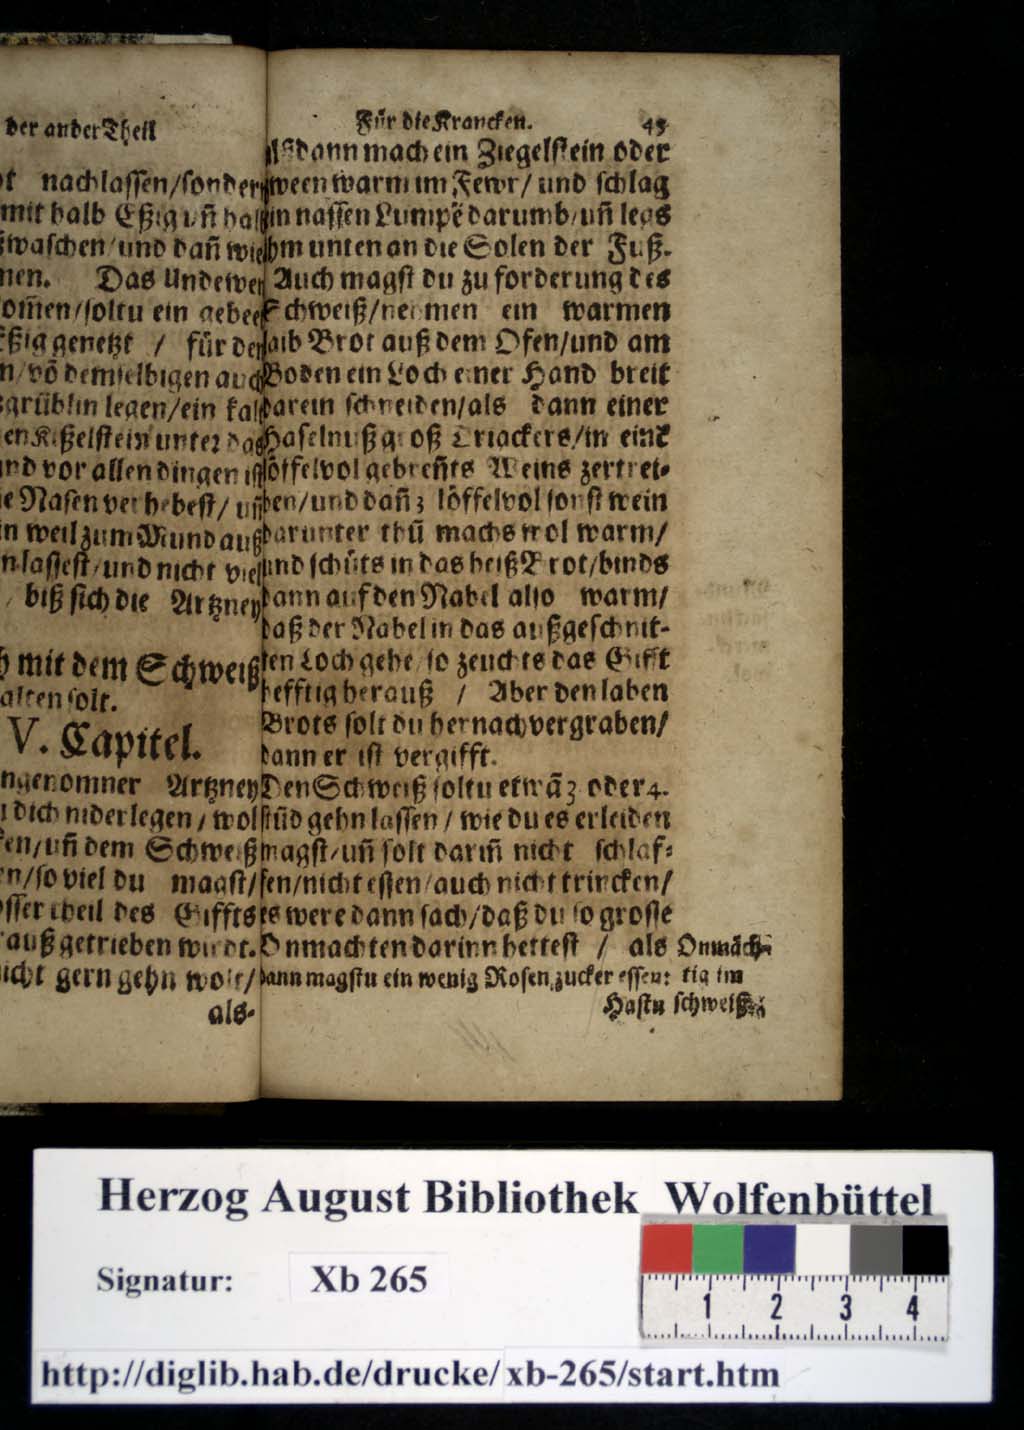 der ander Theil
nachlassen/sonder
mit halb Eßig uñ hal
waschen/und dañ wie
nen. Das Undewe
om̃en/soltu ein gebee
ßig genetzt / für der
n/võ demselbigen auch
grüblin legen/ein kal
en Kißelstein unter das
nd vor allen dingen ist
e Nasen verhebest/ uñ
n weil zum Mund auß
n lassest/und nicht viel
/ biß sich die Artzney
mit dem Schweiß
alten solt.
V. Capitel.
ngenomner Artzney
dich niderlegen/wol
en/uñ dem Schweiß
n/so viel du magst/
sser theil des Giffts
auß getrieben wirdt.
icht gern gehn wolt/
als-
Für die Krancken. 45
alsdann mach ein Ziegelstein oder
zween warm im Fewr/ und schlag
in nassen Lumpẽ darumb/uñ legs
ihm unten an die Solen der Fuß.
Auch magst du zu forderung des
Schweiß/nemmen ein warmen
laib Brot auß dem Ofen/und am
Boden ein Loch einer Hand breit
darein schneiden/als dann einer
Haselnuß groß Triackers/in einẽ
löffelvol gebreñts Weins zertrei-
ben/und dañ 3 löffelvol sonst wein
darunter thũ machs wol warm/
und schüts in das heiß Brot/binds
dann auf den Nabel also warm/
daß der Nabel in das außgeschnit-
ten Loch gehe/so zeuchts das Gifft
hefftig herauß / Aber den laben
Brots solt du hernach vergraben/
dann er ist vergifft.
Den Schweiß soltu etwã 3 oder 4.
stũd gehn lassen / wie du es erleiden
magst/uñ solt dariñ nicht schlaf-
fen/nicht essen/auch nicht trincken/
es were dann sach/daß du so grosse
Onmachten darinn hettest / als
dann magstu ein wenig Rosenzucker essen:
Hastu
Onmäch-
tig im
schweiß
Herzog August Bibliothek Wolfenbüttel
Signatur: Xb 265
1 2 3 4
http://diglib.hab.de/drucke/xb-265/start.htm